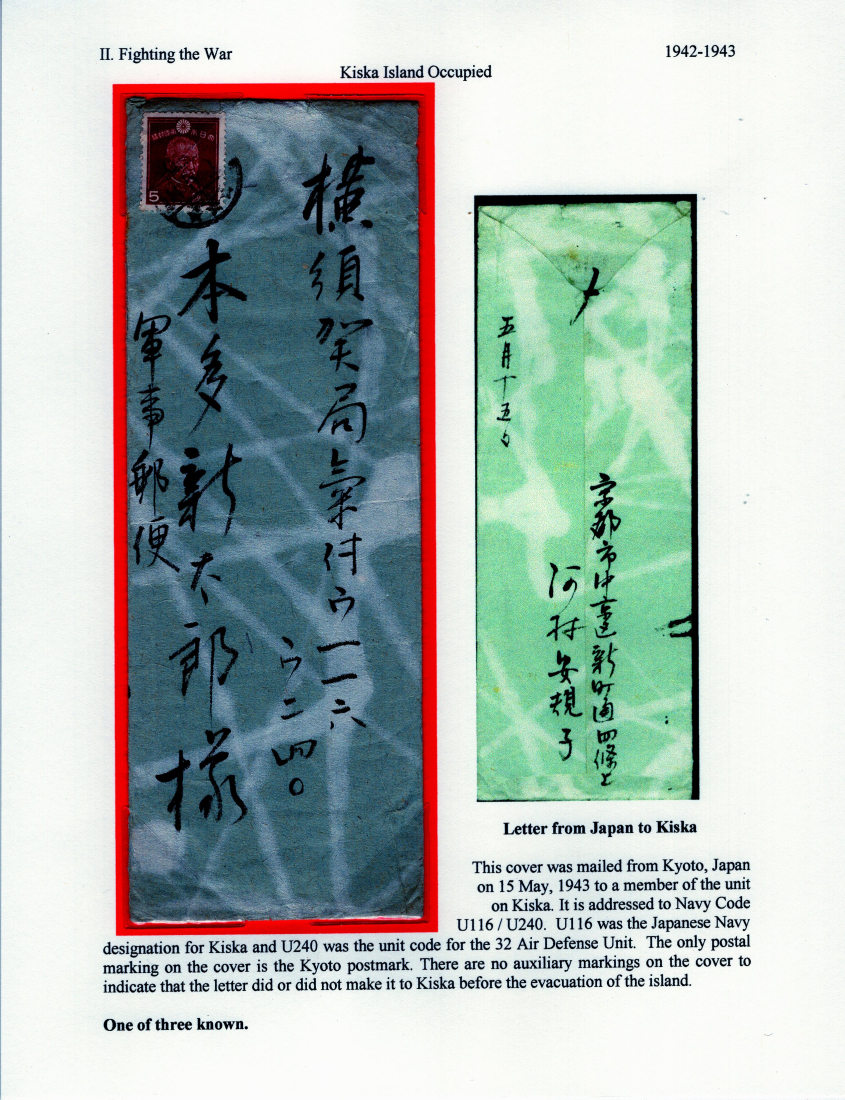 II. Fighting the War
1942-1943
Kiska Island Occupied
5
横須賀局氣付ウ一一六
ウ二四〇
本多新太郎様
軍事郵便
京都市中京區新町通四條上
河村安規子
五月十五日
Letter from Japan to Kiska
This cover was mailed from Kyoto, Japan
on 15 May, 1943 to a member of the unit
on Kiska. It is addressed to Navy Code
U116 / U240. U116 was the Japanese Navy
designation for Kiska and U240 was the unit code for the 32 Air Defense Unit. The only postal
marking on the cover is the Kyoto postmark. There are no auxiliary markings on the cover to
indicate that the letter did or did not make it to Kiska before the evacuation of the island.
One of three known.